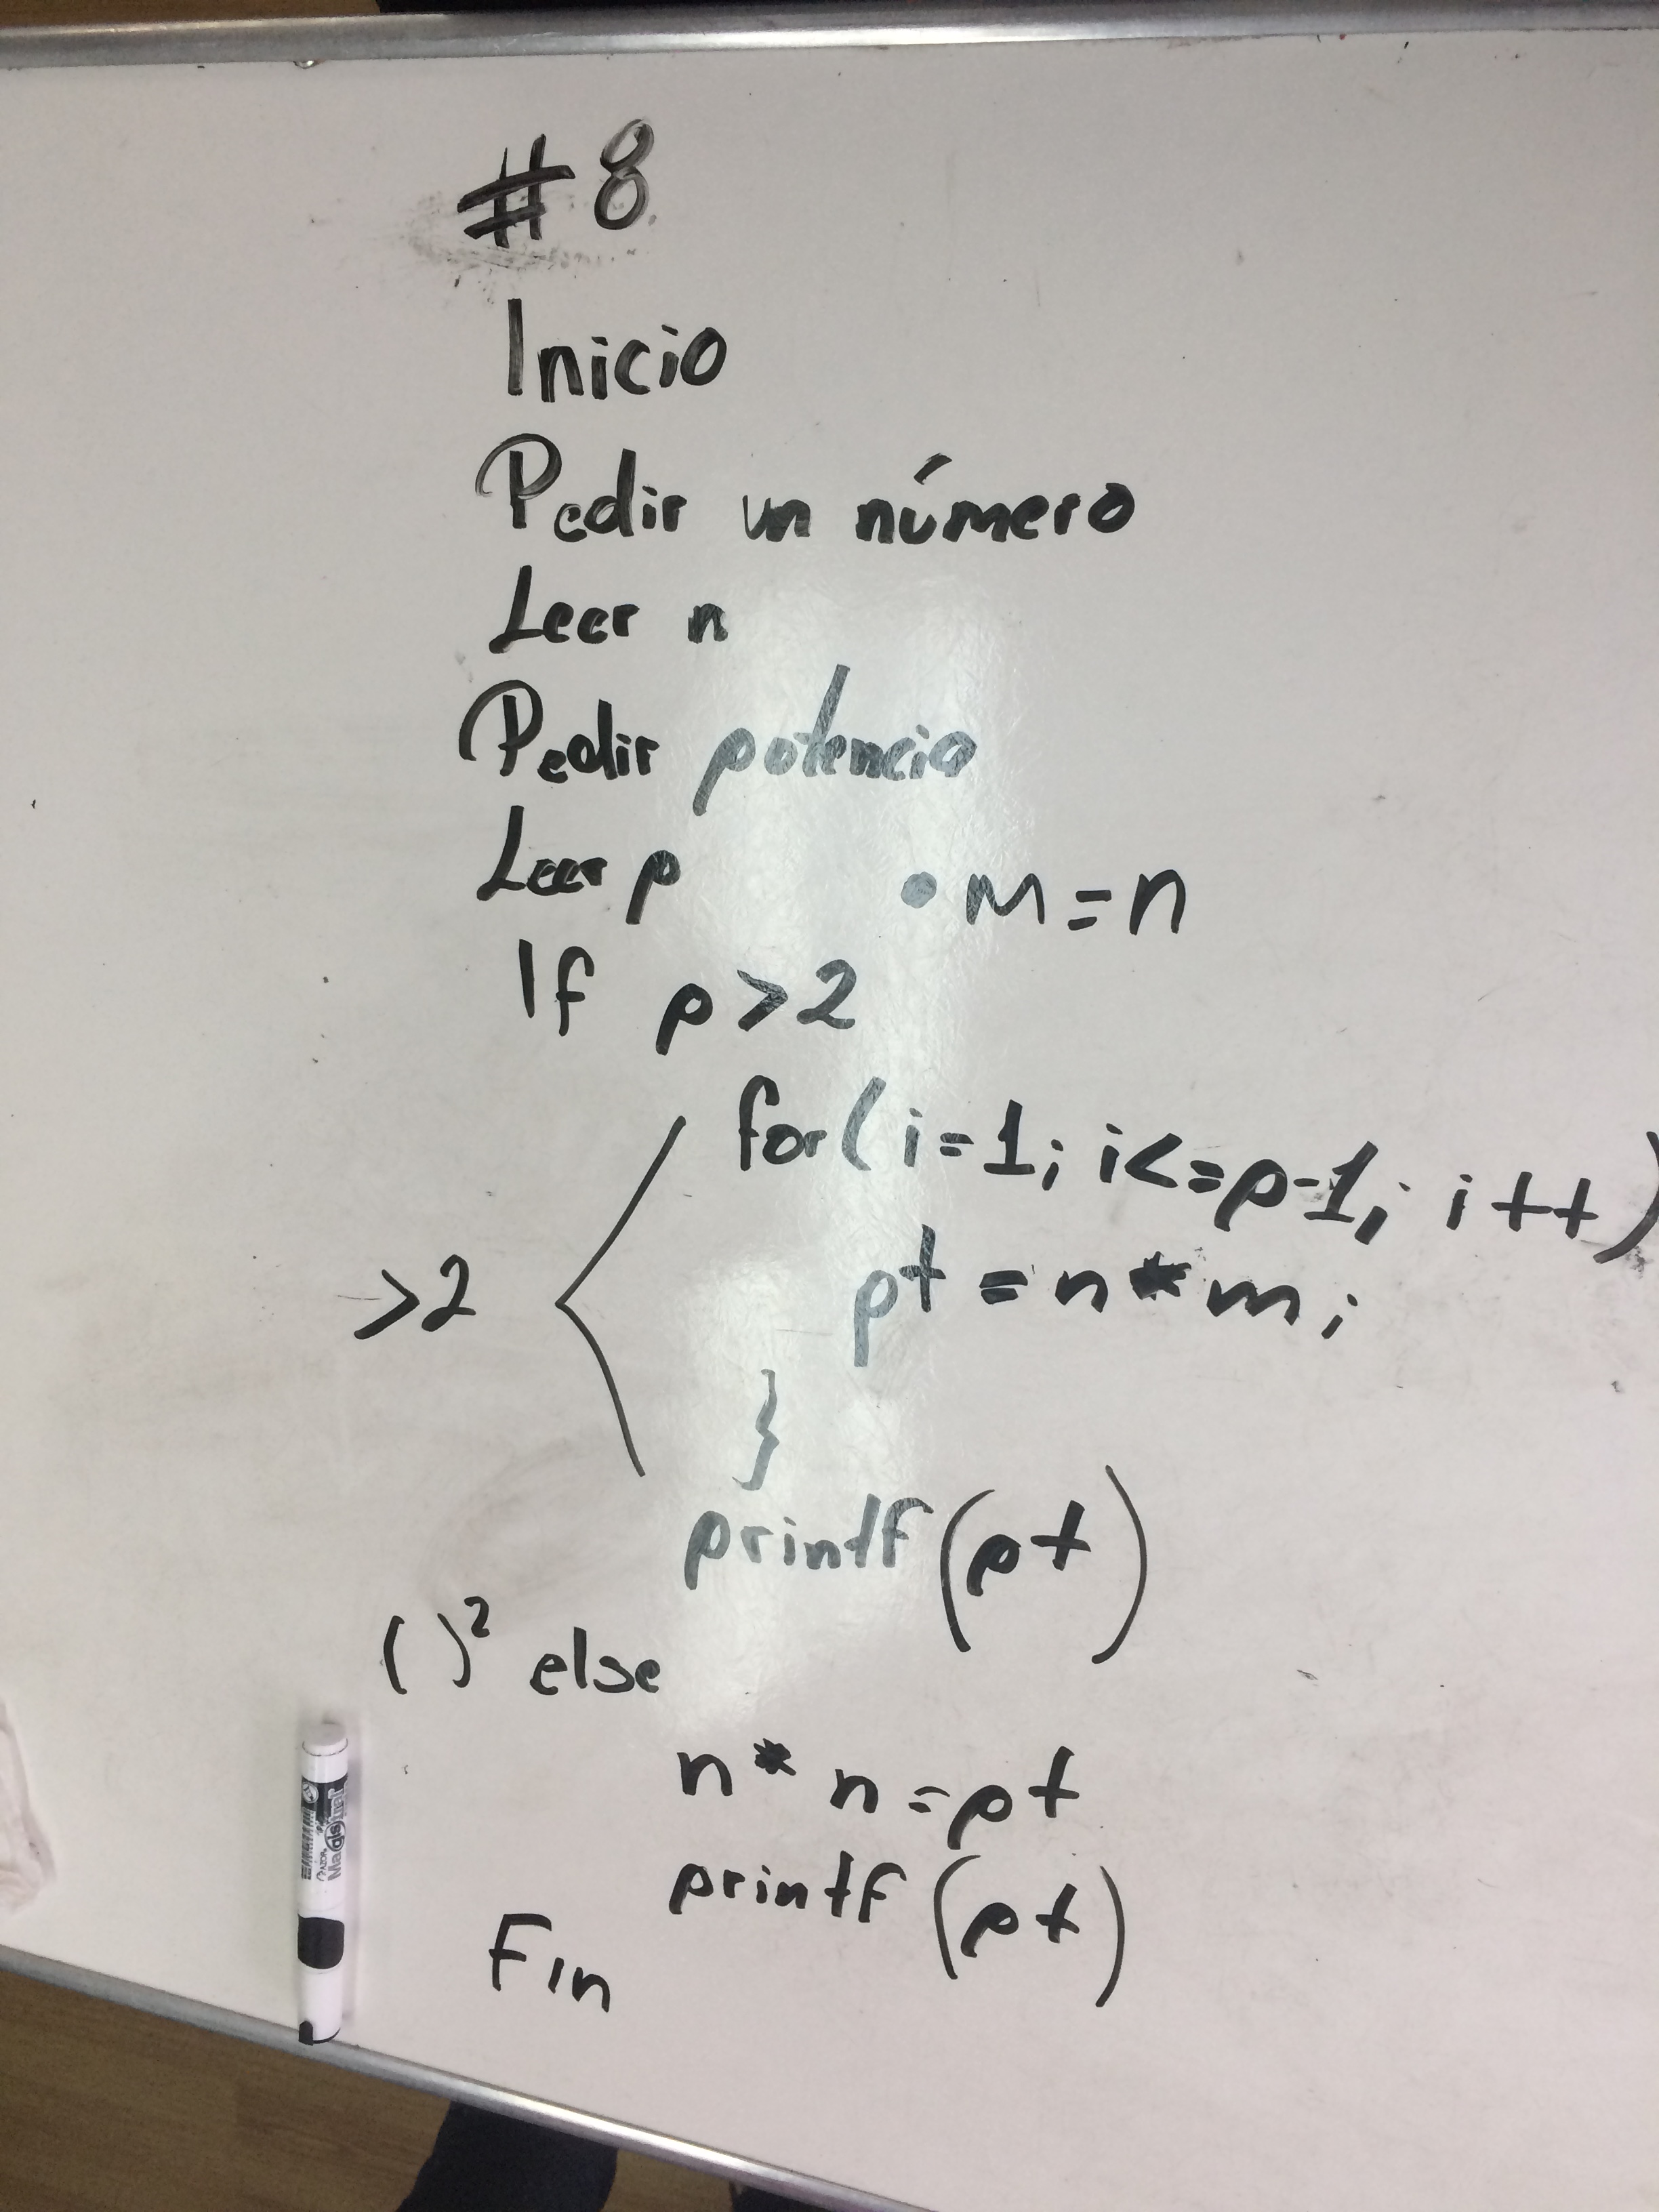 #8
Inicio
Pedir un número
Leer n
Pedir potencia
Leer p •m=n
If p>2
for(i=1; i<=p-1; i++)
pt=n*m;
>2
}
printf(pt)
( )² else
n*n=pt
printf(pt)
Fin
Magistral